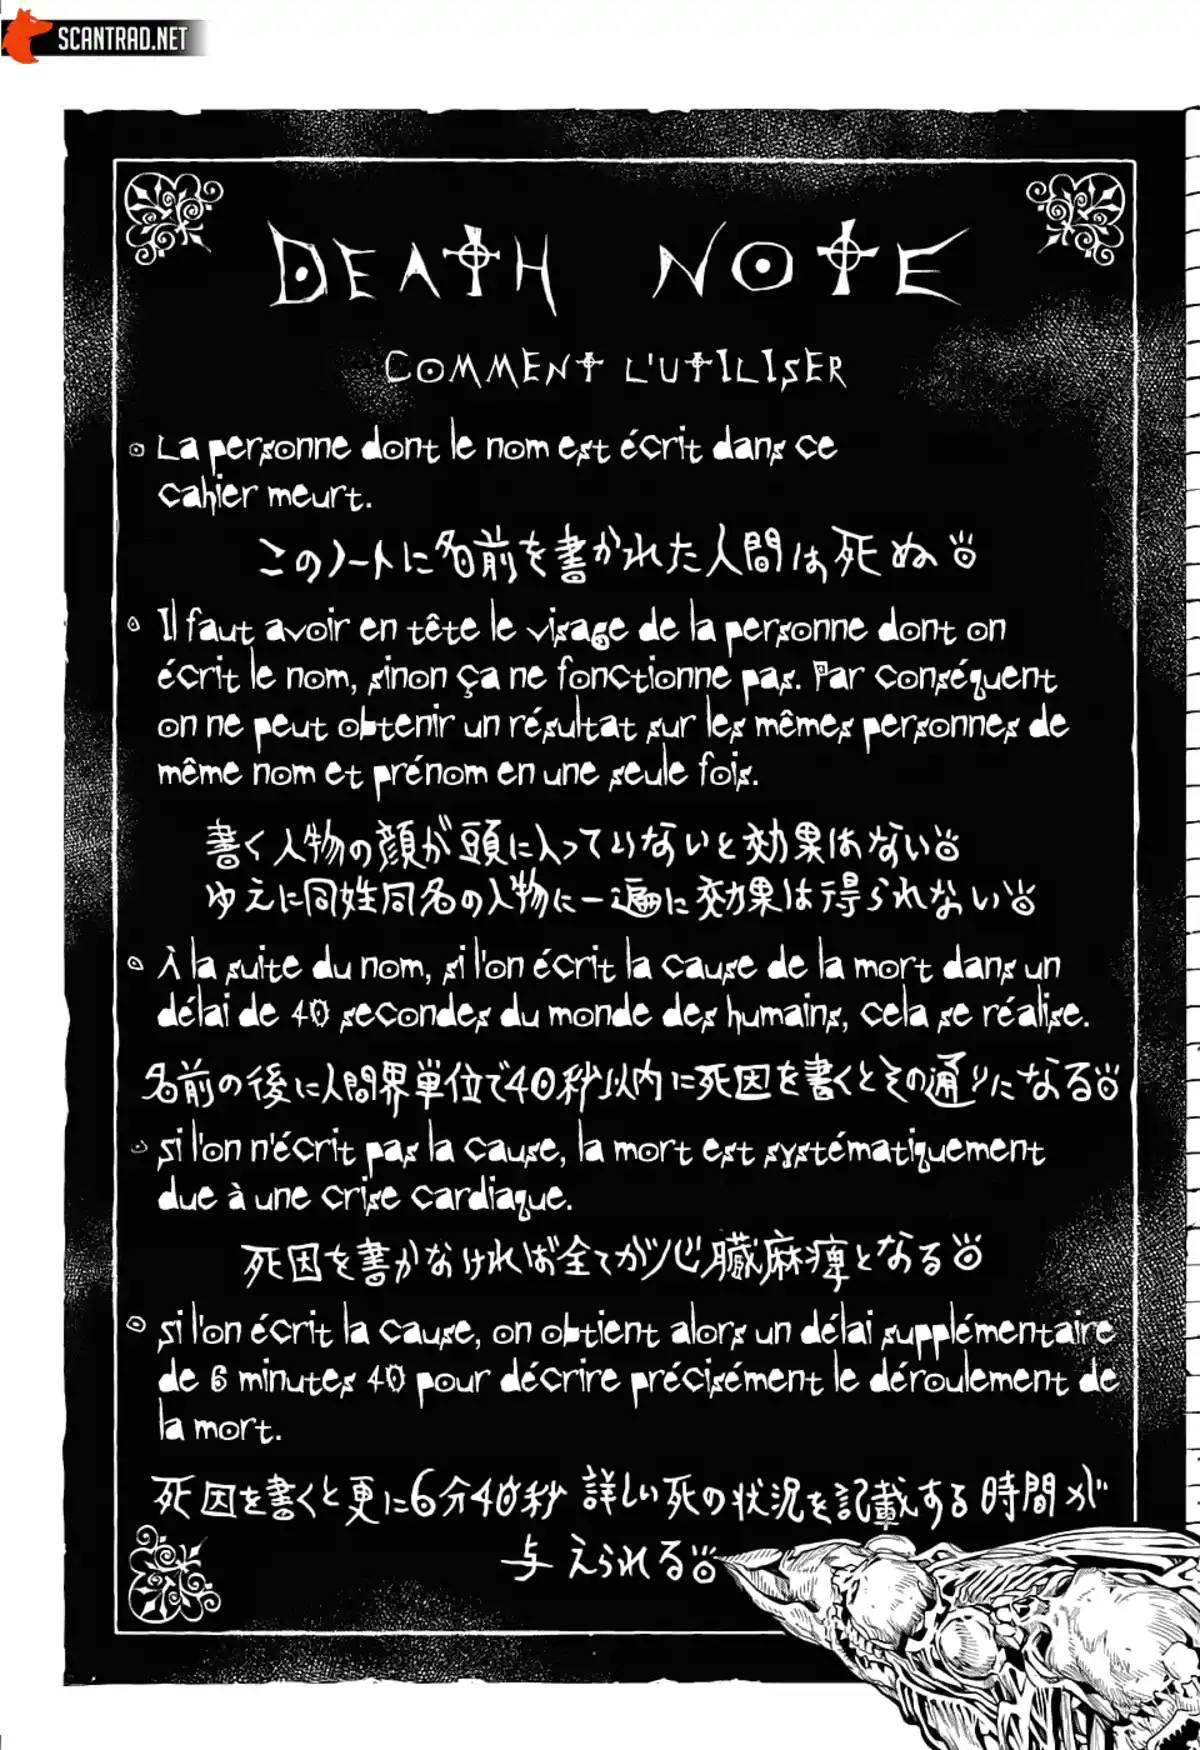 SCANTRAD.NET
DEATH NOTE
COMMENT L'UTILISER
La personne dont le nom est écrit dans ce
cahier meurt.
このノートに名前を書かれた人間は死ぬ
Il faut avoir en tête le visage de la personne dont on
écrit le nom, sinon ça ne fonctionne pas. Par conséquent
on ne peut obtenir un résultat sur les mêmes personnes de
même nom et prénom en une seule fois.
書く人物の顔が頭に入っていないと効果はない
ゆえに同姓同名の人物に一遍に効果は得られない
À la suite du nom, si l'on écrit la cause de la mort dans un
délai de 40 secondes du monde des humains, cela se réalise.
名前の後に人間界単位で40秒以内に死因を書くとその通りになる
si l'on n'écrit pas la cause, la mort est systématiquement
due à une crise cardiaque.
死因を書かなければ全てが心臓麻痺となる
si l'on écrit la cause, on obtient alors un délai supplémentaire
de 6 minutes 40 pour décrire précisément le déroulement de
la mort.
死因を書くと更に6分40秒 詳しい死の状況を記載する時間が
与えられる